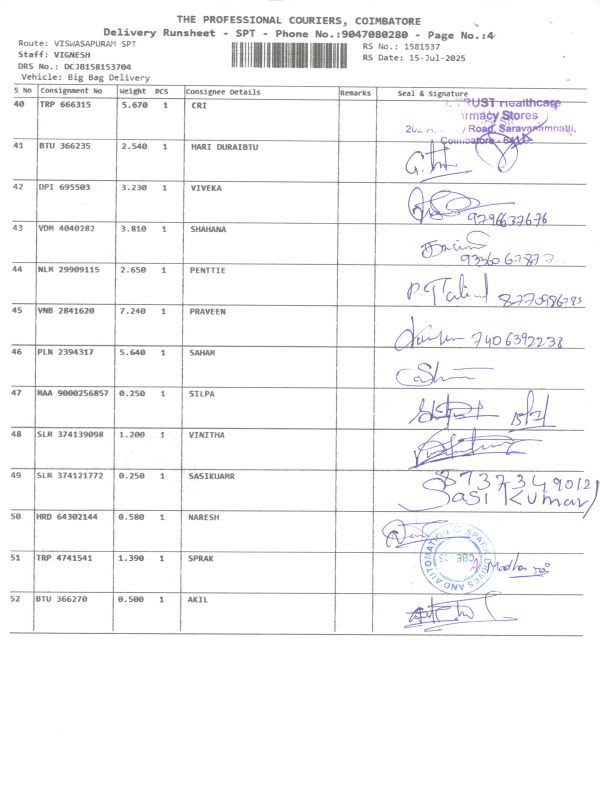 THE PROFESSIONAL COURIERS, COIMBATORE
Delivery Runsheet - SPT - Phone No.:9047080280 - Page No.:4
Route: VISWASAPURAM SPT
RS No.: 1581537
Staff: VIGNESH
RS Date: 15-Jul-2025
DRS No.: DCJB158153704
Vehicle: Big Bag Delivery
S No Consignment No Weight PCS Consignee Details Remarks Seal & Signature
40 TRP 666315 5.670 1 CRI
TRUST Healthcare
Stores
Road, Saravanampatti,
Coimbatore -
41 BTU 366235 2.540 1 HARI DURAIBTU
42 DPI 695503 3.230 1 VIVEKA
9296637676
43 VDM 4040282 3.810 1 SHAHANA
44 NLM 29909115 2.650 1 PENTTIE
45 VNB 2841620 7.240 1 PRAVEEN
7406392238
46 PLN 2394317 5.640 1 SAHAM
47 MAA 9000256857 0.250 1 SILPA
48 SLM 374139098 1.200 1 VINITHA
49 SLM 374121772 0.250 1 SASIKUAMR
8737349012
Sasi Kumar
50 HRD 64302144 0.580 1 NARESH
51 TRP 4741541 1.390 1 SPRAK
SPARK DRIVES AND AUTOMATION
CBE - 35
52 BTU 366270 0.500 1 AKIL